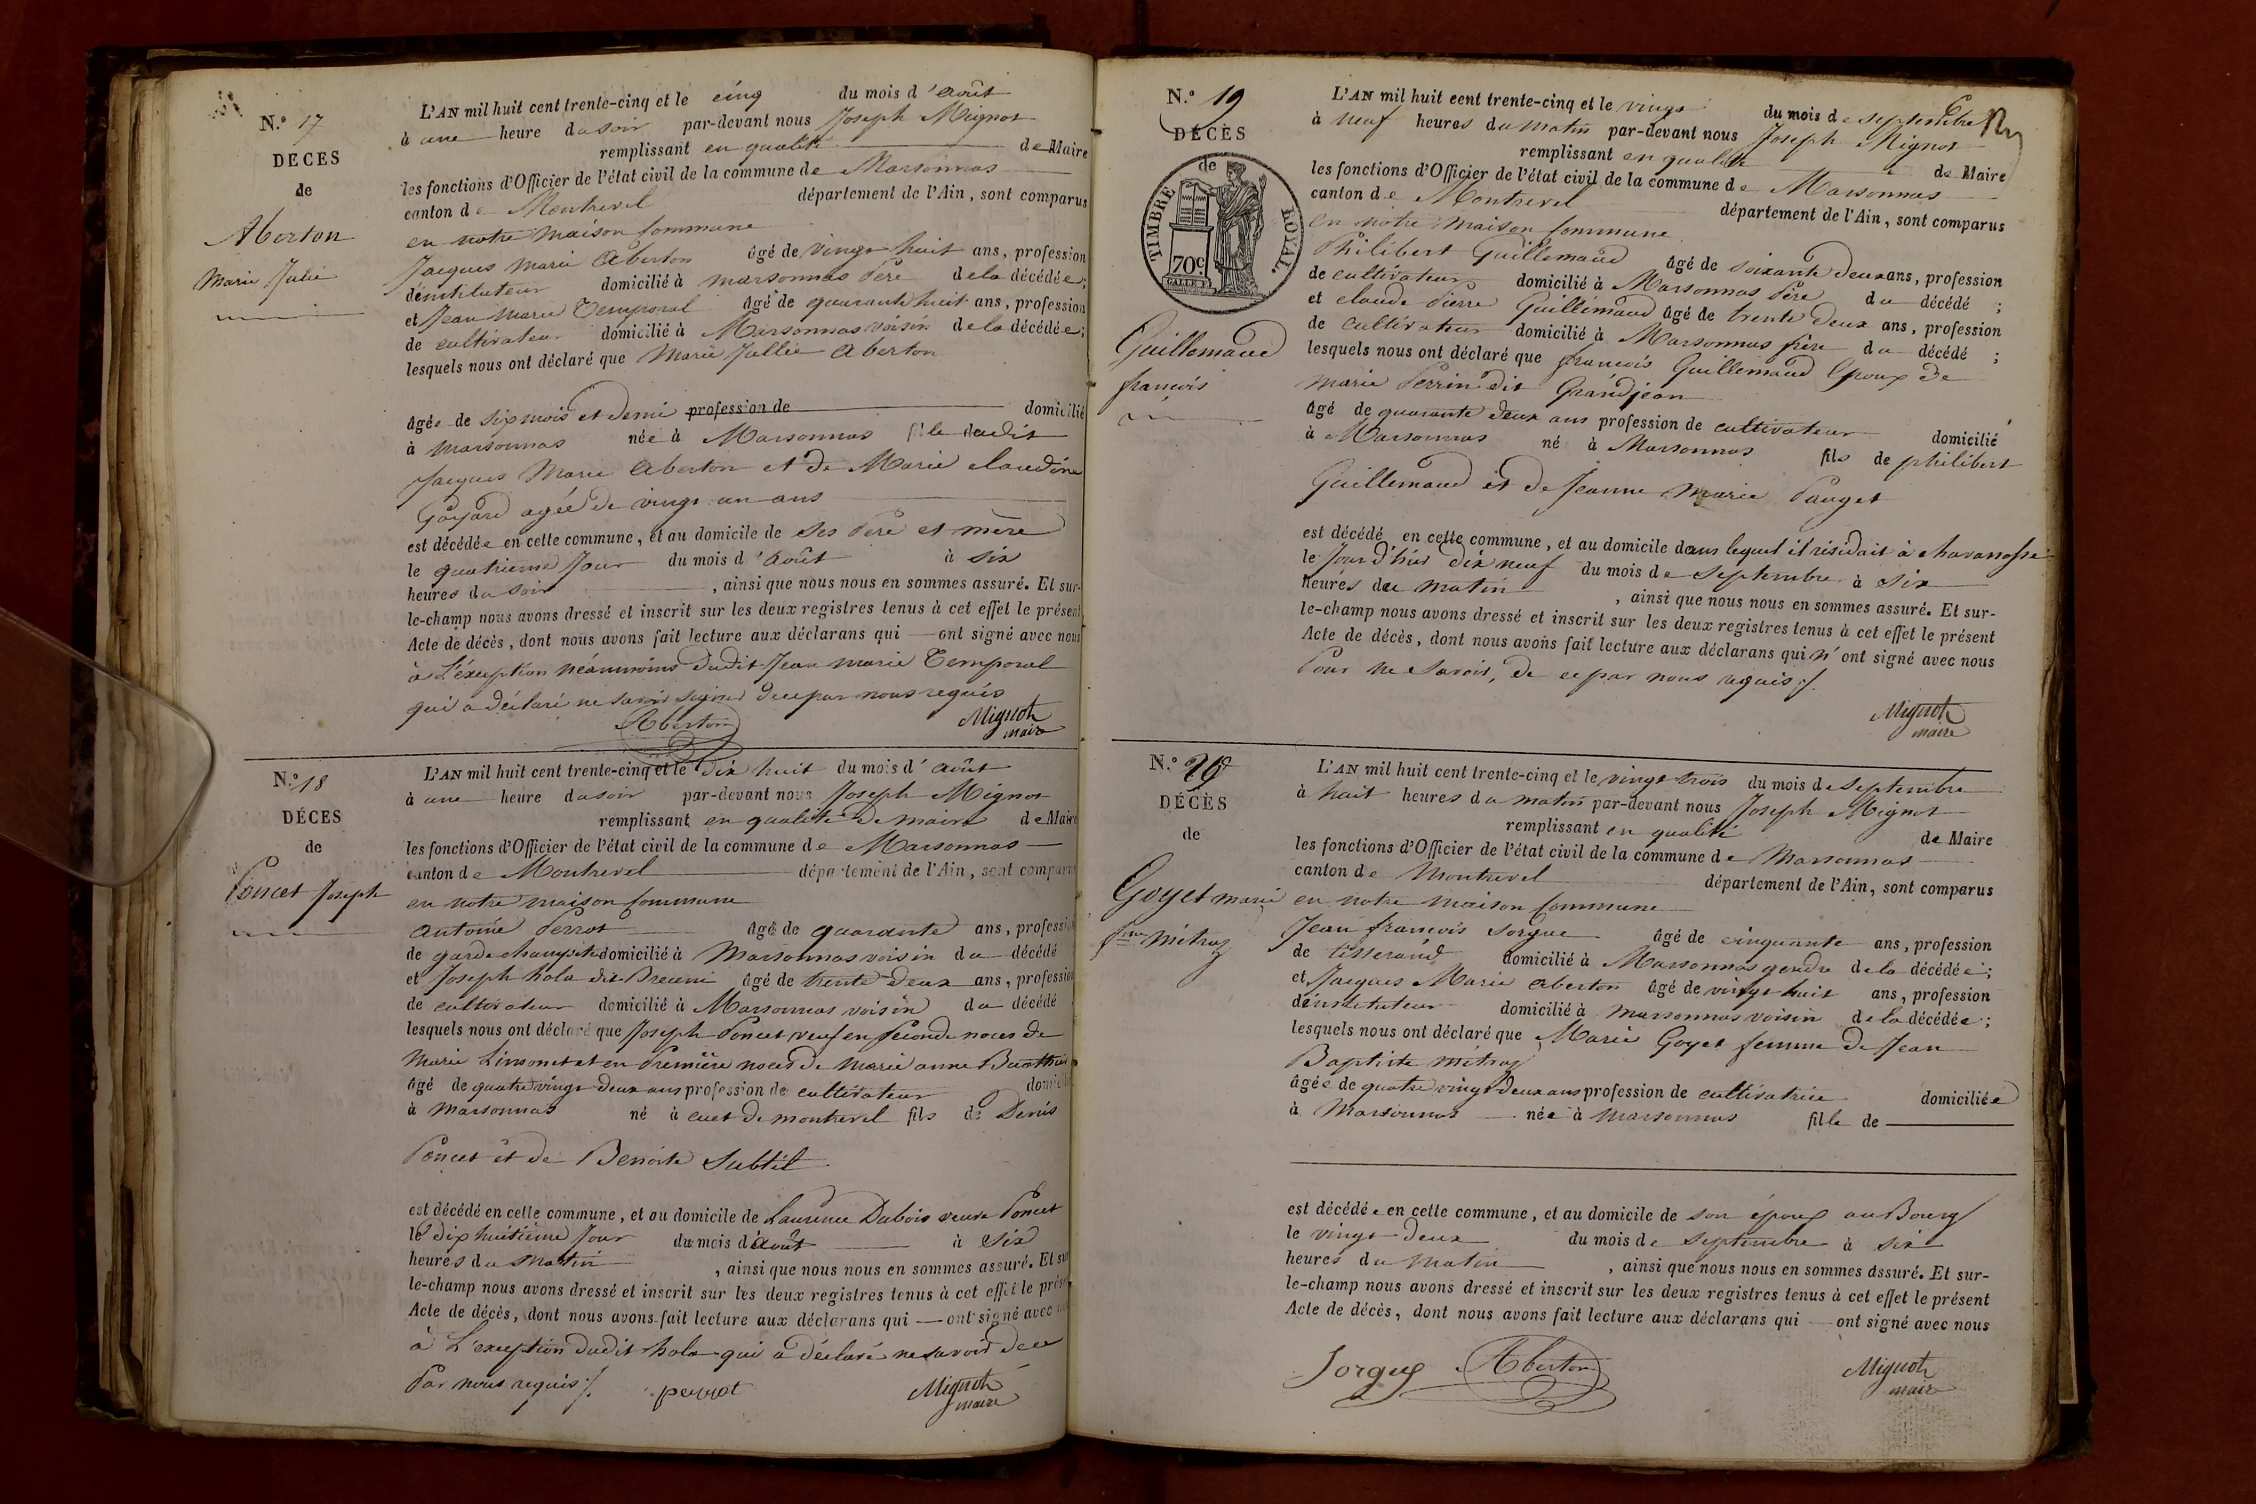 N.º 17
DÉCES
de
Aberton
Marie Julie
L'AN mil huit cent trente-cinq et le cinq du mois d'août
à une heure du soir par-devant nous Joseph Mignot
remplissant en qualité de Maire
les fonctions d'Officier de l'état civil de la commune de Marsonnas
canton de Montrevel département de l'Ain, sont comparus
en notre maison commune
Jacques Marie Aberton âgé de vingt huit ans, profession
d'instituteur domicilié à marsonnas Père de la décédée;
et Jean Marie Temporal âgé de quarante huit ans, profession
de cultivateur domicilié à Marsonnas voisin de la décédée;
lesquels nous ont déclaré que Marie Jullie Aberton
âgée de six mois et demi profession de domicilié
à marsonnas née à Marsonnas fille dudit
Jacques Marie Aberton et de Marie claudine
Goyard agée de vingt un ans
est décédée en cette commune, et au domicile de ses Père et mère
le quatrieme Jour du mois d'août à six
heures du soir, ainsi que nous nous en sommes assuré. Et sur-
le-champ nous avons dressé et inscrit sur les deux registres tenus à cet effet le présent
Acte de décès, dont nous avons fait lecture aux déclarans qui ont signé avec nous
à L'éxception néanmoins dudit Jean marie Temporal
qui a déclaré ne savoir signer de ce par nous requis
Aberton Mignot
maire
N.º 18
DÉCES
de
Poncet Joseph
L'AN mil huit cent trente-cinq et le dix huit du mois d'août
à une heure du soir par-devant nous Joseph Mignot
remplissant en qualité de maire de Maire
les fonctions d'Officier de l'état civil de la commune de Marsonnas
canton de Montrevel département de l'Ain, sont comparus
en notre maison commune
Antoine Perrot âgé de quarante ans, profession
de garde champetre domicilié à Marsonnas voisin du décédé
et Joseph hola dit Bruni âgé de trente deux ans, profession
de cultivateur domicilié à Marsonnas voisin du décédé
lesquels nous ont déclaré que Joseph Poncet veuf en seconde noces de
Marie Linsonet et en Première noces de Marie anne
âgé de quatre vingt deux ans profession de cultivateur domicilié
à Marsonnas né à cuet de montrevel fils de Denis
Poncet et de Benoite Subtil
est décédé en cette commune, et au domicile de Laurence Dubois veuve Poncet
le dix huitième Jour du mois d'août à six
heures du matin, ainsi que nous nous en sommes assuré. Et sur
le-champ nous avons dressé et inscrit sur les deux registres tenus à cet effet le présent
Acte de décès, dont nous avons fait lecture aux déclarans qui ont signé avec nous
à L'exception dudit hola qui a déclaré ne savoir de ce
Par nous requis /. perrot Mignot
maire
N.º 19
DÉCÈS
de
TIMBRE ROYAL.
70c
Guillemaud
françois
L'AN mil huit cent trente-cinq et le vingt du mois de septembre
à neuf heures du matin par-devant nous Joseph Mignot
remplissant en qualité de Maire
les fonctions d'Officier de l'état civil de la commune de Marsonnas
canton de Montrevel département de l'Ain, sont comparus
en notre maison commune
Philibert Guillemaud âgé de soixante deux ans, profession
de cultivateur domicilié à Marsonnas Père du décédé;
et claude Pierre Guillemaud âgé de trente deux ans, profession
de cultivateur domicilié à Marsonnas frère du décédé;
lesquels nous ont déclaré que françois Guillemaud Epoux de
Marie Perrin dit Grandjean
âgé de quarante deux ans profession de cultivateur domicilié
à Marsonnas né à Marsonnas fils de philibert
Guillemaud et de Jeanne Marie Pauget
est décédé en cette commune, et au domicile dans lequel il résidait à
le Jour d'hier dix neuf du mois de septembre à six
heures du matin, ainsi que nous nous en sommes assuré. Et sur-
le-champ nous avons dressé et inscrit sur les deux registres tenus à cet effet le présent
Acte de décès, dont nous avons fait lecture aux déclarans qui n'ont signé avec nous
Pour ne savoir, de ce par nous requis /.
Mignot
maire
N.º 20
DÉCÈS
de
Goyet marie
fme Métraz
L'AN mil huit cent trente-cinq et le vingt trois du mois de septembre
à huit heures du matin par-devant nous Joseph Mignot
remplissant en qualité de Maire
les fonctions d'Officier de l'état civil de la commune de Marsonnas
canton de Montrevel département de l'Ain, sont comparus
en notre maison commune
Jean françois Sorgue âgé de cinquante ans, profession
de tisserand domicilié à Marsonnas gendre de la décédée;
et Jacques Marie Aberton âgé de vingt huit ans, profession
d'instituteur domicilié à marsonnas voisin de la décédée;
lesquels nous ont déclaré que Marie Goyet femme de Jean
Baptiste Métraz
âgée de quatre vingt deux ans profession de cultivatrice domiciliée
à Marsonnas née à Marsonnas fille de
est décédée en cette commune, et au domicile de son époux au Bourg
le vingt deux du mois de septembre à six
heures du matin, ainsi que nous nous en sommes assuré. Et sur-
le-champ nous avons dressé et inscrit sur les deux registres tenus à cet effet le présent
Acte de décès, dont nous avons fait lecture aux déclarans qui ont signé avec nous
Sorgue Aberton Mignot
maire